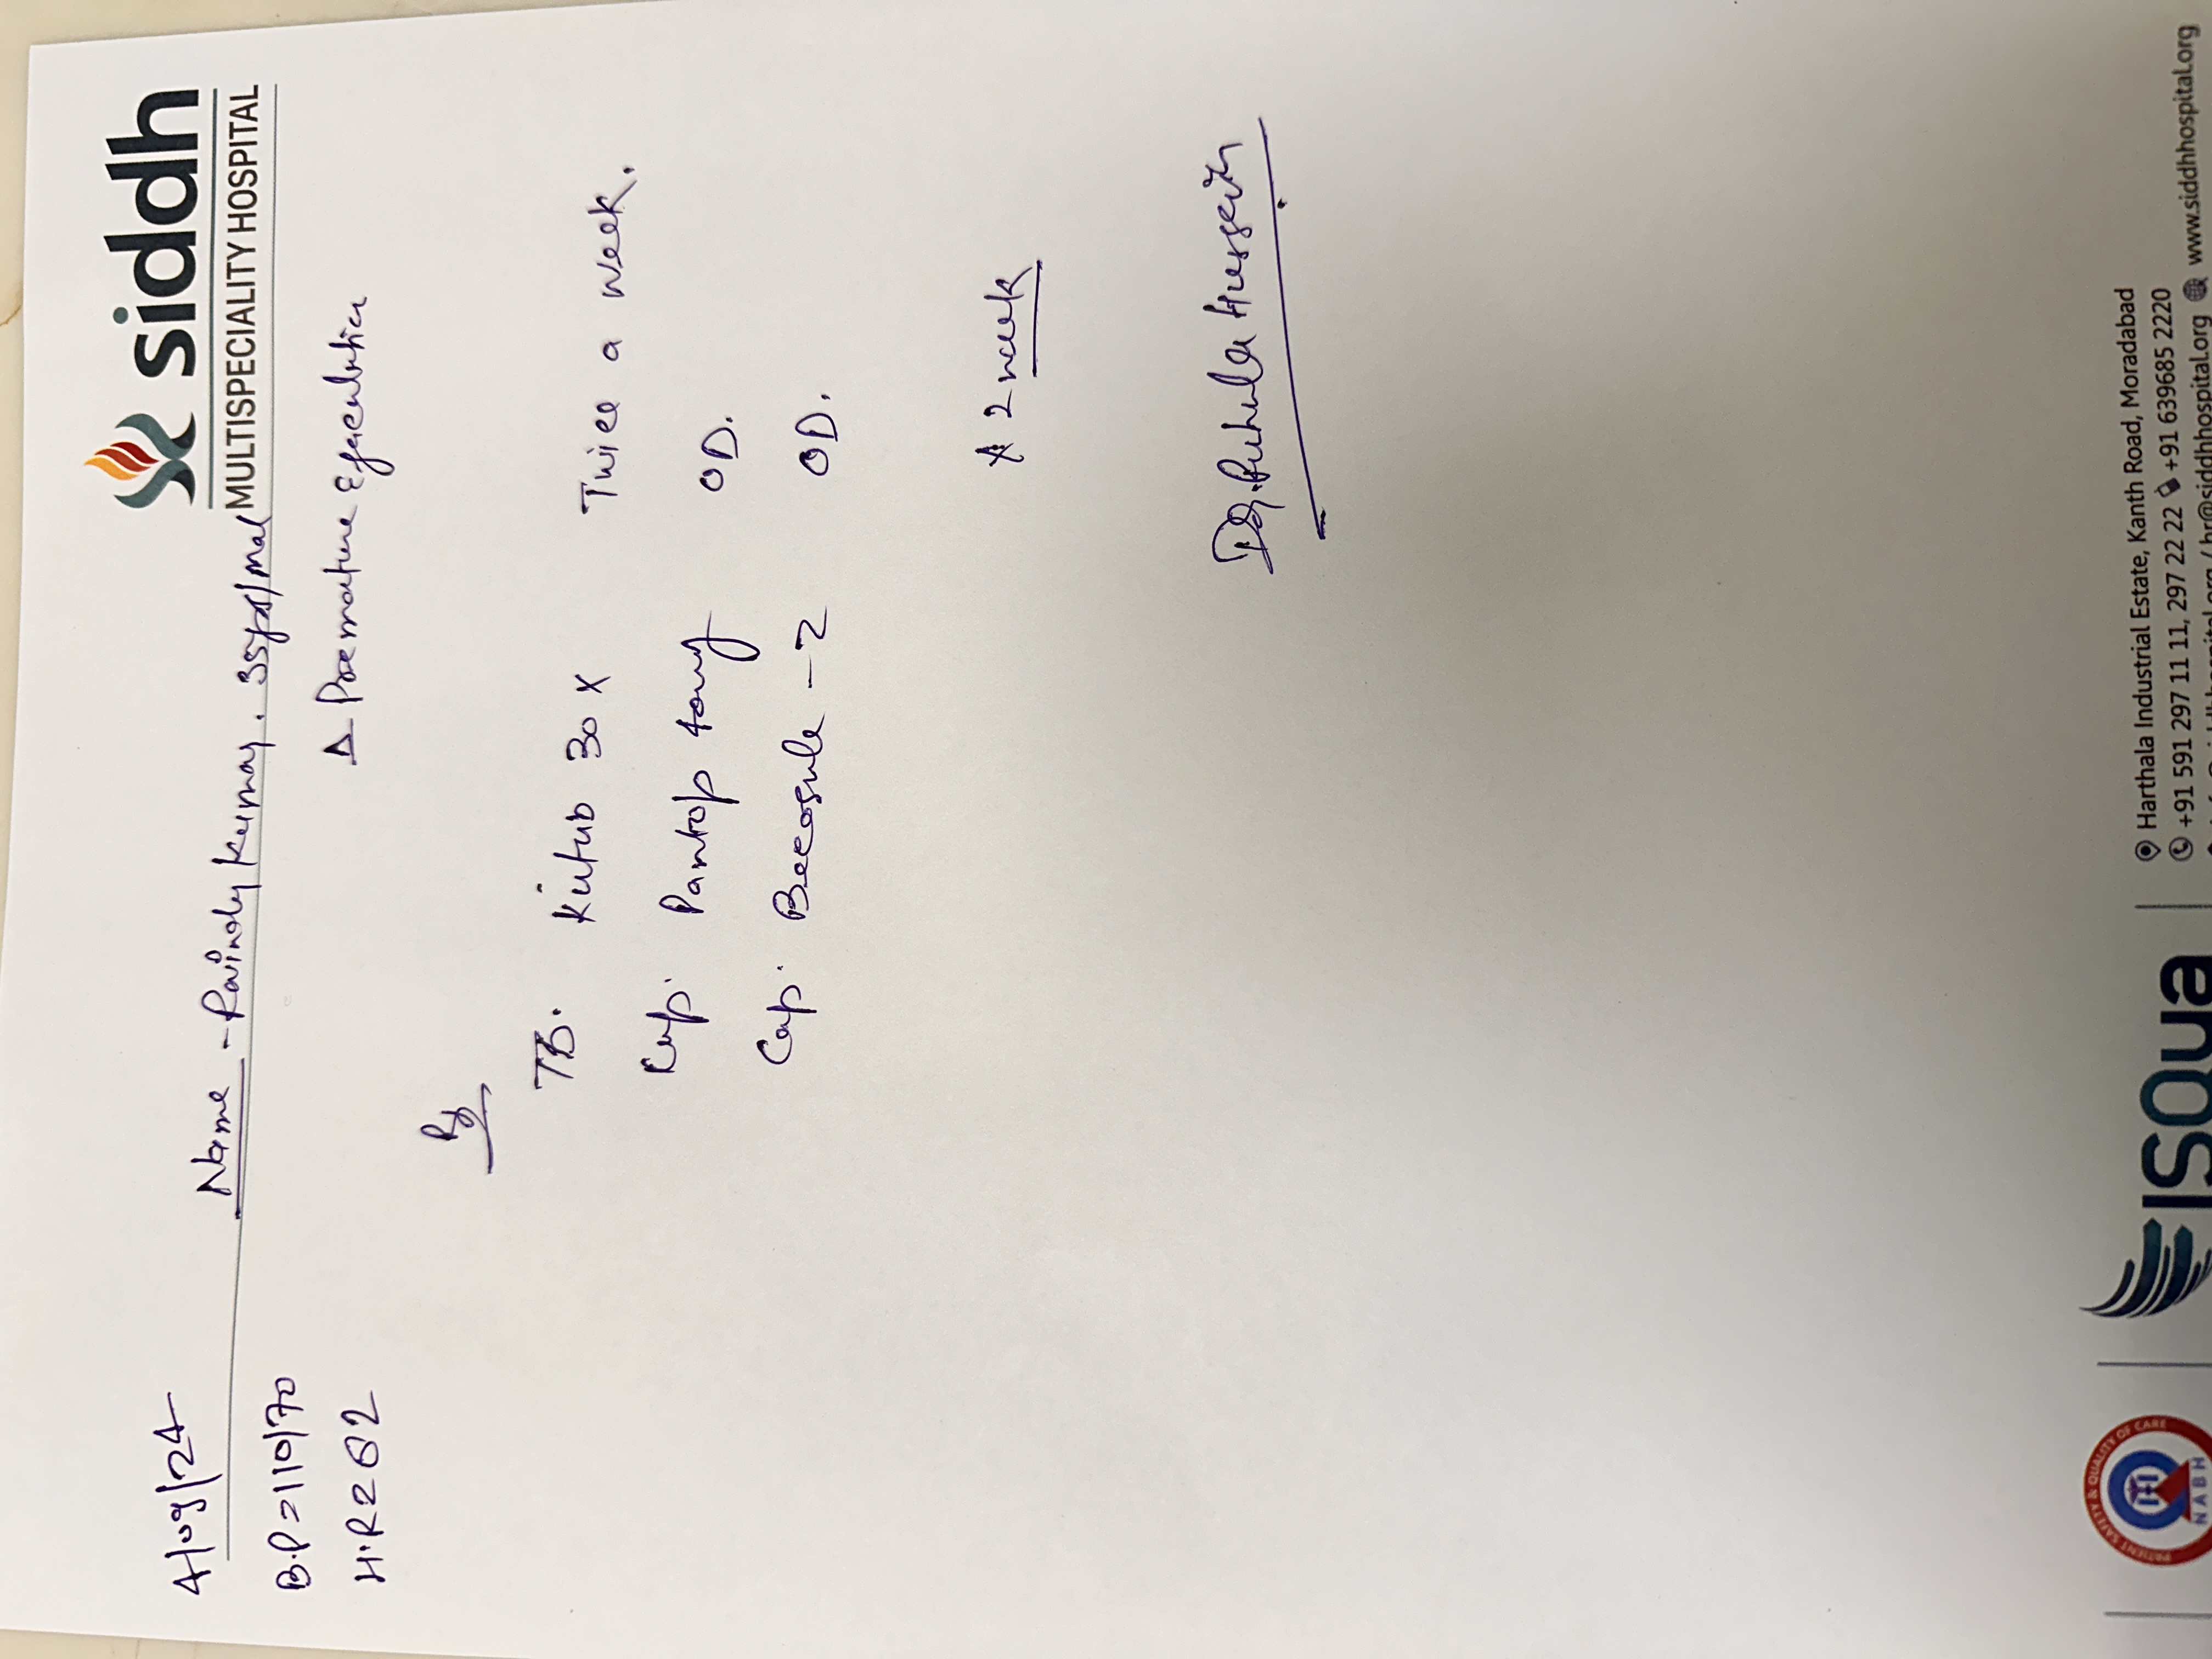 siddh
MULTISPECIALITY HOSPITAL
4/09/24
Name - Ravinder Kumar. 35yrs/Mal
B.P = 110/70
H.R = 82
Δ Premature Ejaculation
Rx
TB. Kutub 30 X Twice a week.
Cap. Pantop 40mg OD.
Cap. Becosule - Z OD.
x 2 week
Dr. Hussain
PATIENT SAFETY & QUALITY OF CARE
NABH
ISQua
Harthala Industrial Estate, Kanth Road, Moradabad
+91 591 297 11 11, 297 22 22 +91 639685 2220
hr@siddhhospital.org www.siddhhospital.org